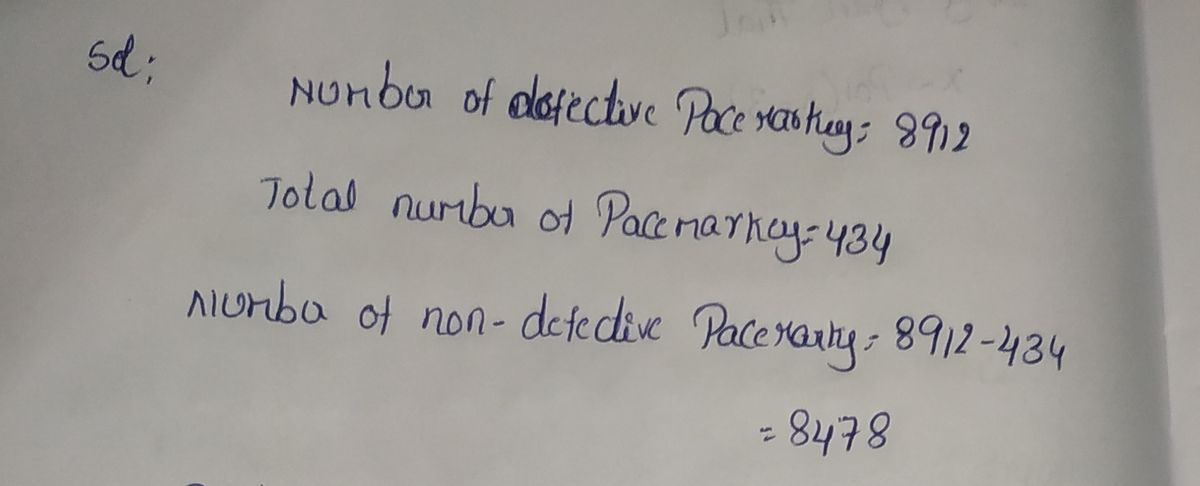 Sol:
Number of defective Pacemarkey= 8912
Total number of Pacemarkey=434
Number of non-defective Pacemarky= 8912-434
= 8478